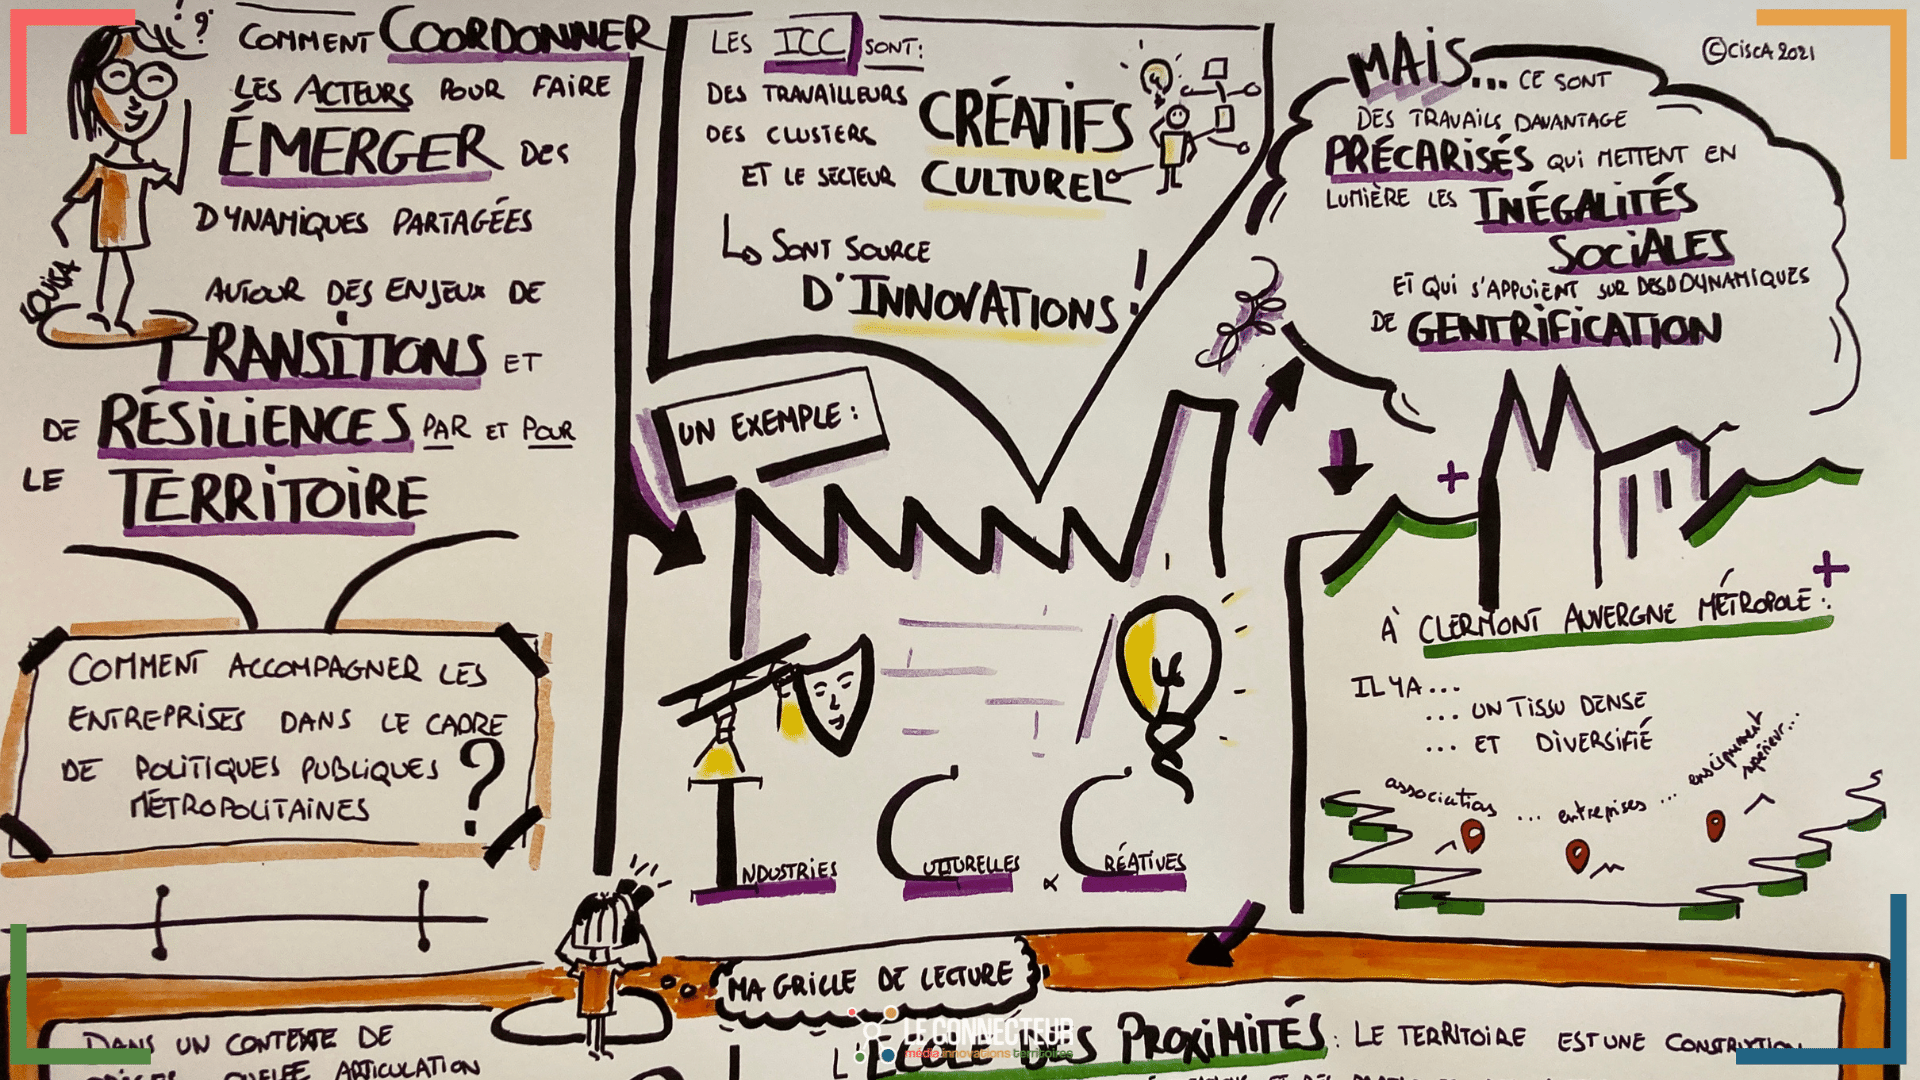 ?
COMMENT COORDONNER
LES ACTEURS POUR FAIRE
ÉMERGER DES
DYNAMIQUES PARTAGÉES
AUTOUR DES ENJEUX DE
TRANSITIONS ET
DE RÉSILIENCES PAR ET POUR
LE TERRITOIRE
LOUISA
COMMENT ACCOMPAGNER LES
ENTREPRISES DANS LE CADRE
DE POLITIQUES PUBLIQUES
MÉTROPOLITAINES ?
LES ICC SONT:
DES TRAVAILLEURS
DES CLUSTERS CRÉATIFS
ET LE SECTEUR CULTUREL
↳ SONT SOURCE
D'INNOVATIONS!
UN EXEMPLE:
INDUSTRIES CULTURELLES & CRÉATIVES
©CISCA 2021
MAIS... CE SONT
DES TRAVAILS DAVANTAGE
PRÉCARISÉS QUI METTENT EN
LUMIÈRE LES INÉGALITÉS
SOCIALES
ET QUI S'APPUIENT SUR DES DYNAMIQUES
DE GENTRIFICATION
+
+
À CLERMONT AUVERGNE MÉTROPOLE:
IL YA...
... UN TISSU DENSE
... ET DIVERSIFIÉ
associations ... entreprises ... enseignement
supérieur...
MA GRILLE DE LECTURE
DANS UN CONTEXTE DE
ARTICULATION
L'ÉCOLE DES PROXIMITÉS: LE TERRITOIRE EST UNE CONSTRUCTION
LE CONNECTEUR
média innovations territoires